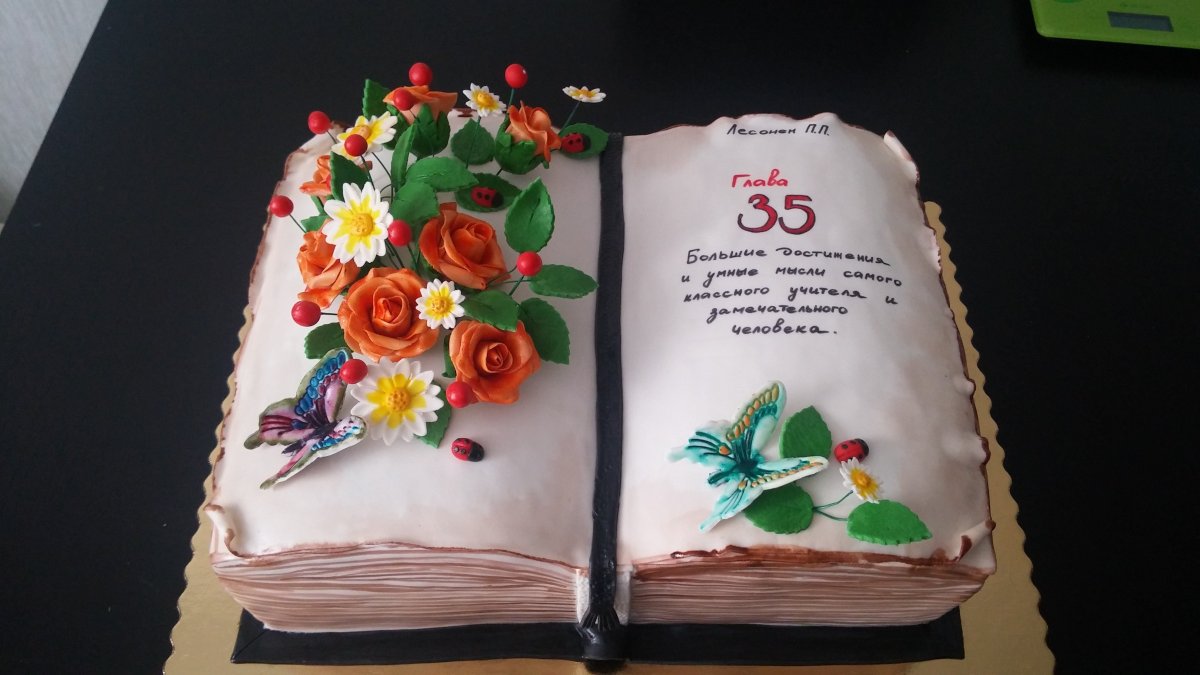 Лесонен П.П.
Глава
35
Большие достижения
и умные мысли самого
классного учителя и
замечательного
человека.